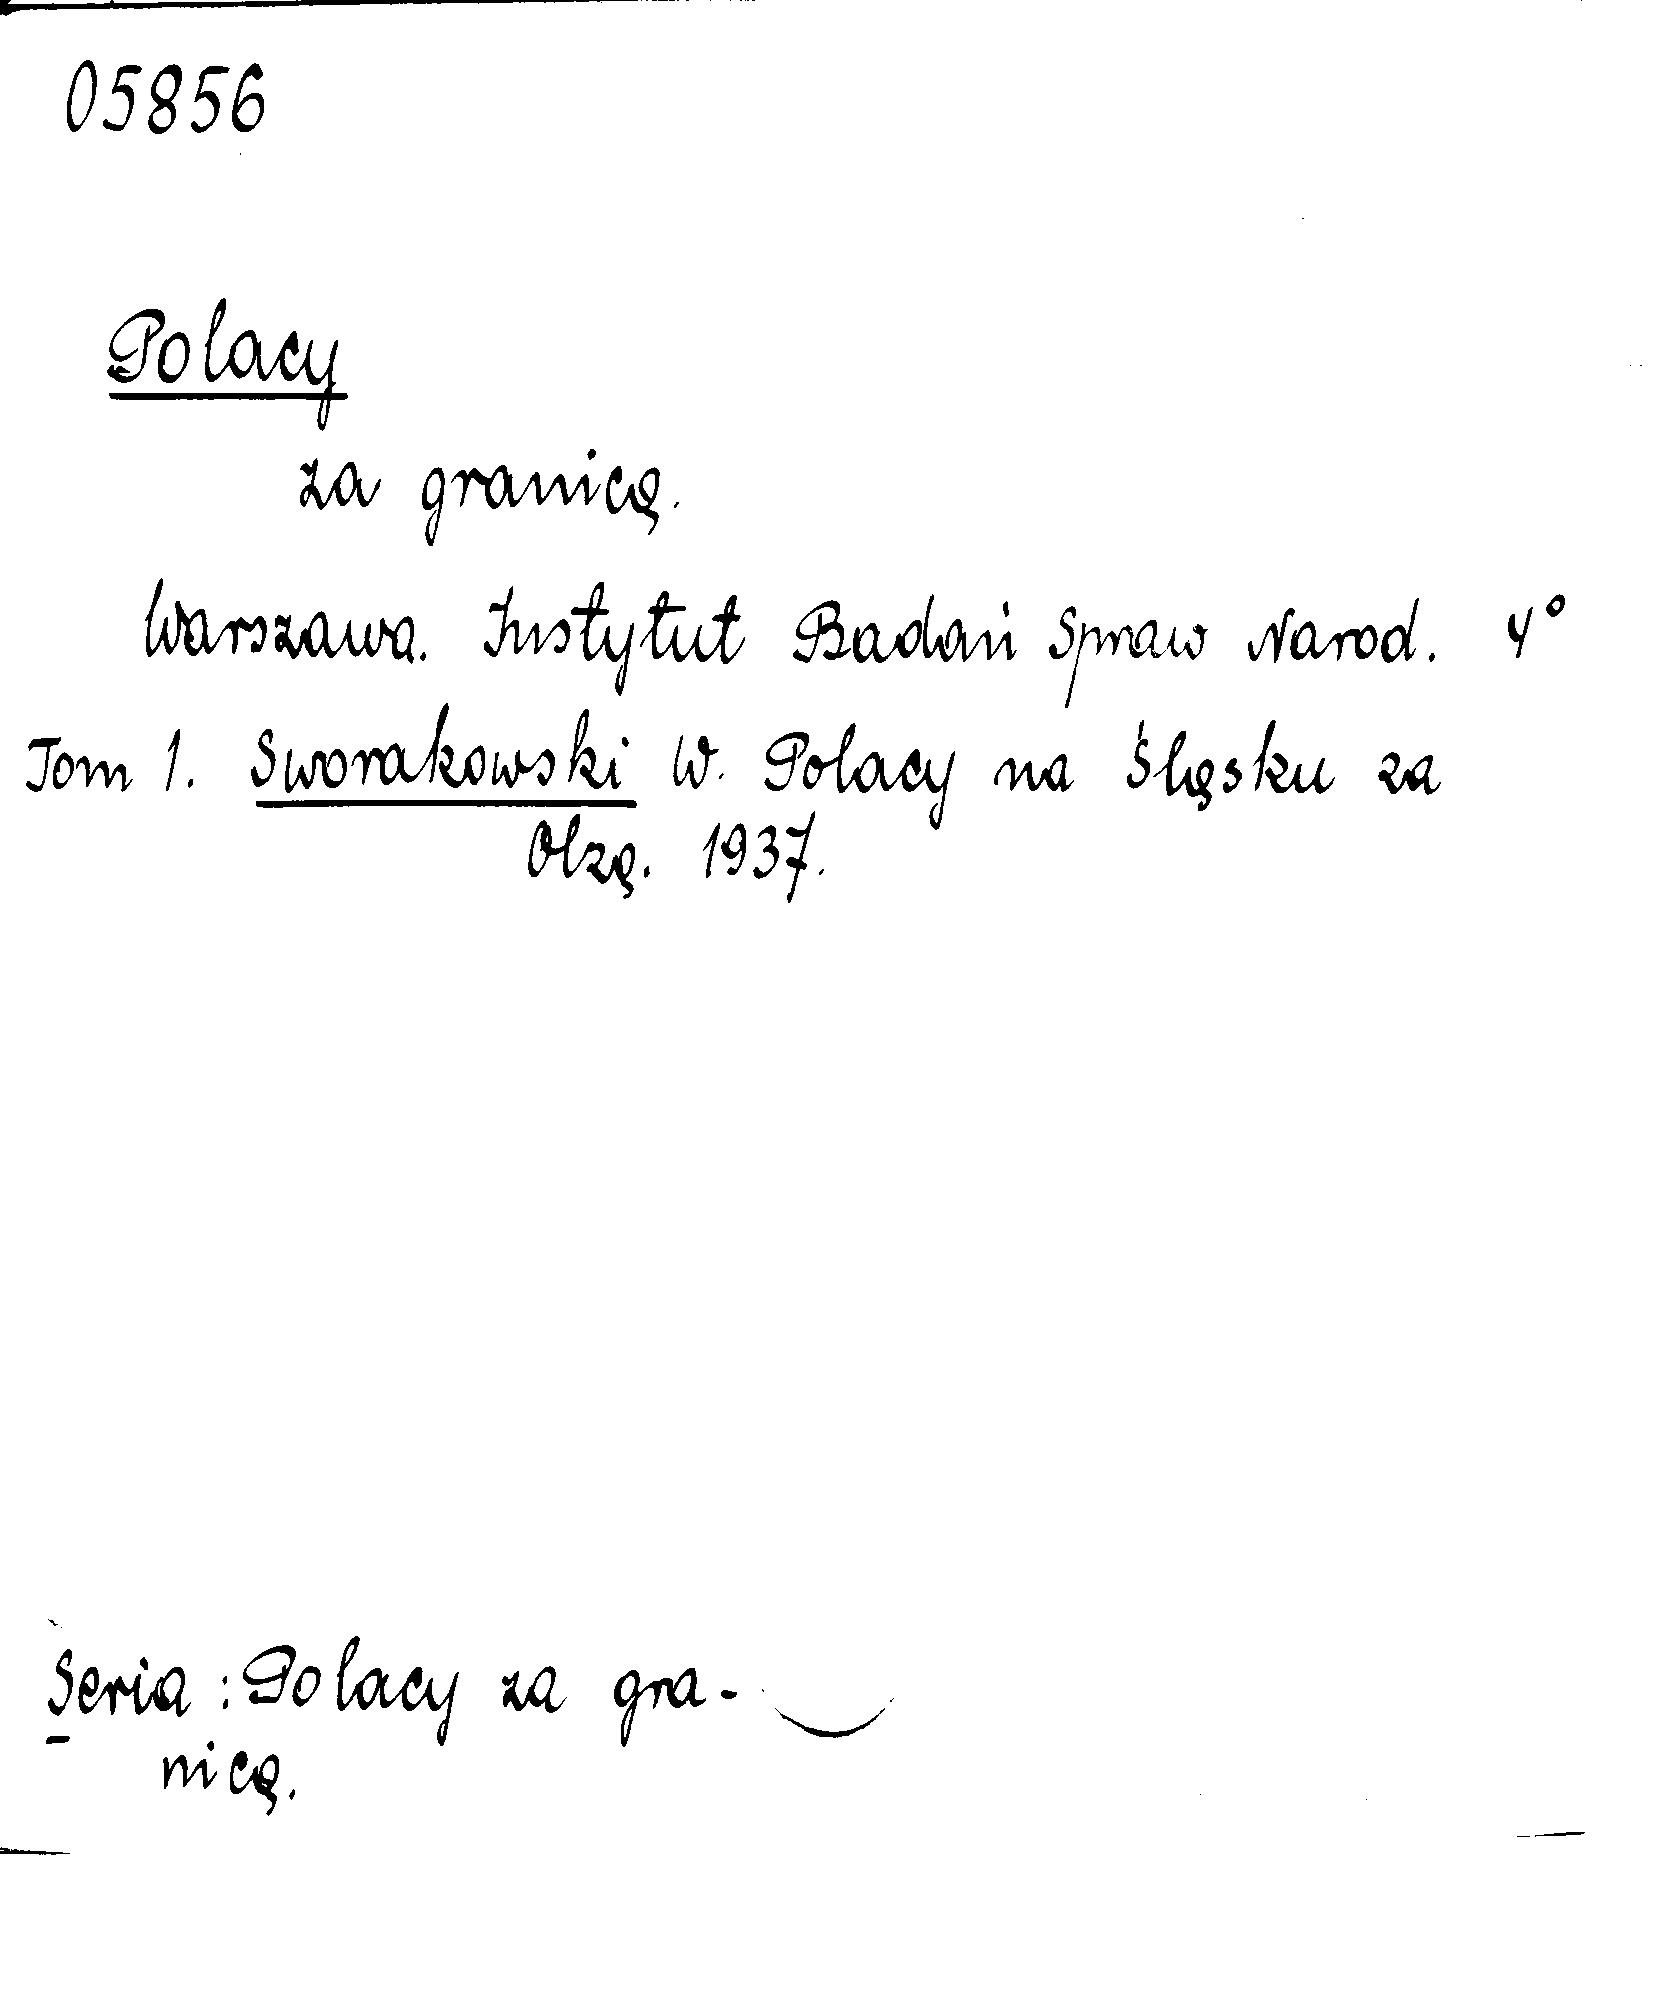 05856
Polacy
za granicą.
Warszawa. Instytut Badań Spraw Narod. 4°
Tom 1. Sworakowski W. Polacy na Śląsku za
Olzą. 1937.
Seria: Polacy za gra-
nicą.